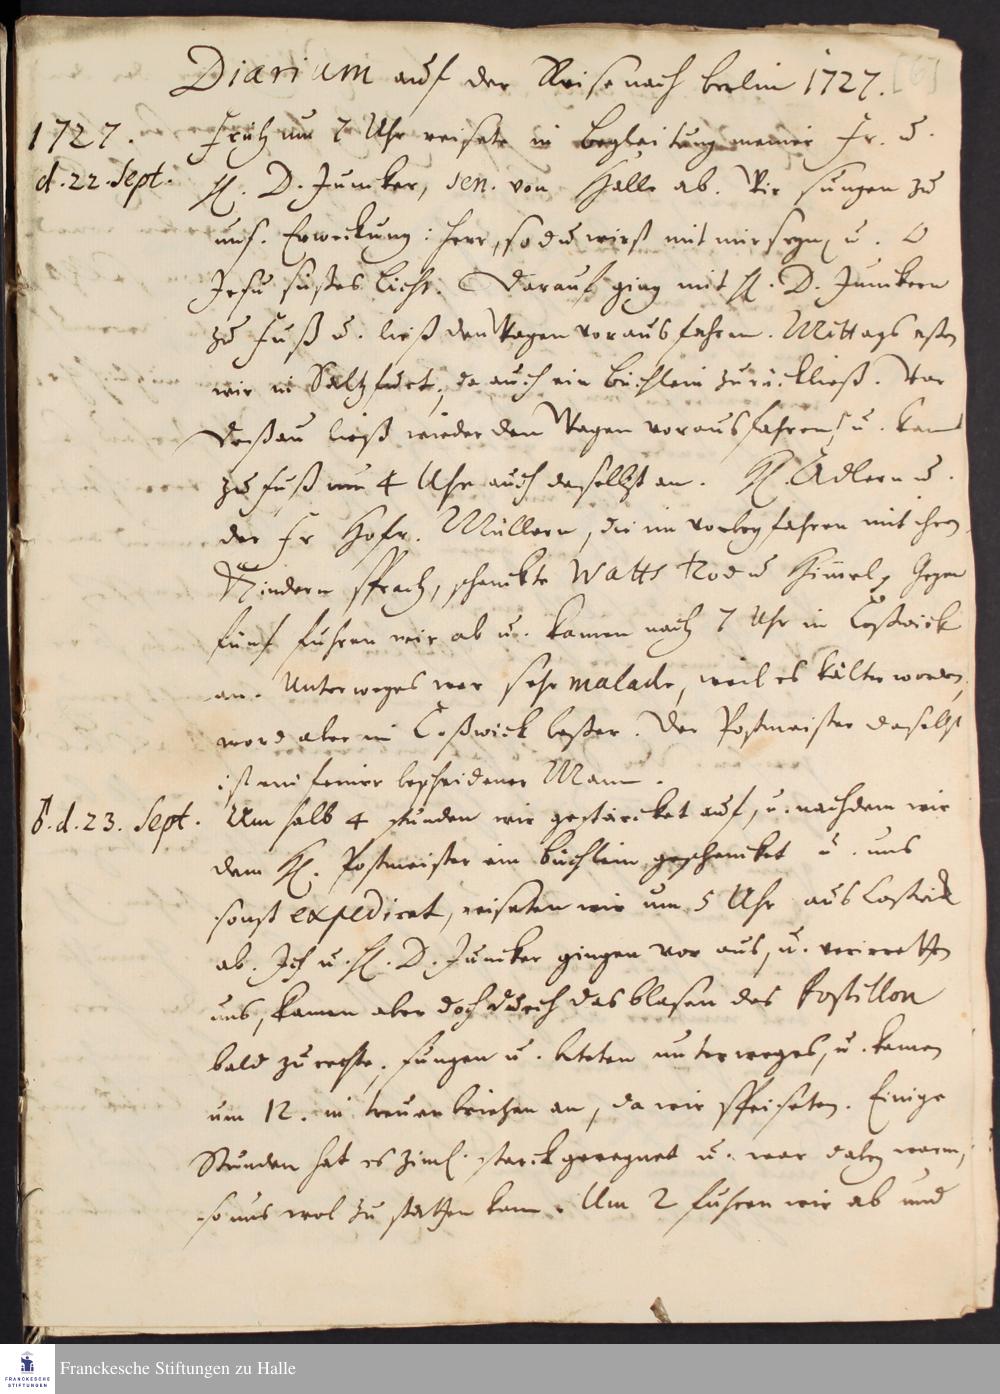 Diarium auf der Reise nach Berlin 1727.
[6]
1727.
d. 22. Sept.
Früh um 7 Uhr reisete in Begleitung meiner Fr. u.
H. D. Juncker, sen. von Halle ab. Wir sungen zu
uns. Erweckung: Herr, so du wirst mit mir seyn, u. O
Jesu süßes Licht. Darauf ging mit H. D. Junckern
zu Fuß u. ließ den Wagen voraus fahren. Mittags aßen
wir in Saltzfurt, da auch ein Büchlein zurückließ. Vor
Deßau ließ wieder den Wagen voraus fahren, u. kam
zu Fuß um 4 Uhr auch daselbst an. H. Adlern u.
der Fr Hofr. Müllern, die im vorbey fahren mit ihren
Kindern sprach, schenckte Watts Tod u Himmel. Gegen
fünf fuhren wir ab u. kamen nach 7 Uhr in Coßwick
an. Unterweges war sehr malade, weil es kälter worden,
ward aber in Coßwick beßer. Der Postmeister daselbst
ist ein feiner bescheidener Mann.
♂. d. 23. Sept.
Um halb 4 stunden wir gestärcket auf, u. nachdem wir
dem H. Postmeister ein Büchlein geschencket u. uns
sonst expediret, reiseten wir um 5 Uhr aus Coswick
ab. Ich u. H. D. Juncker gingen vor aus, u. verirreten
uns, kamen aber doch durch das blasen des Postillon
bald zu rechte, sungen u. beteten unterweges, u. kamen
um 12. in Treuenbrietzen an, da wir speiseten. Einige
Stunden hat es ziml. starck geregnet u. war dabey warm,
so uns wol zu statten kam. Um 2 fuhren wir ab und
Franckesche Stiftungen zu Halle
FRANCKESCHE
STIFTUNGEN